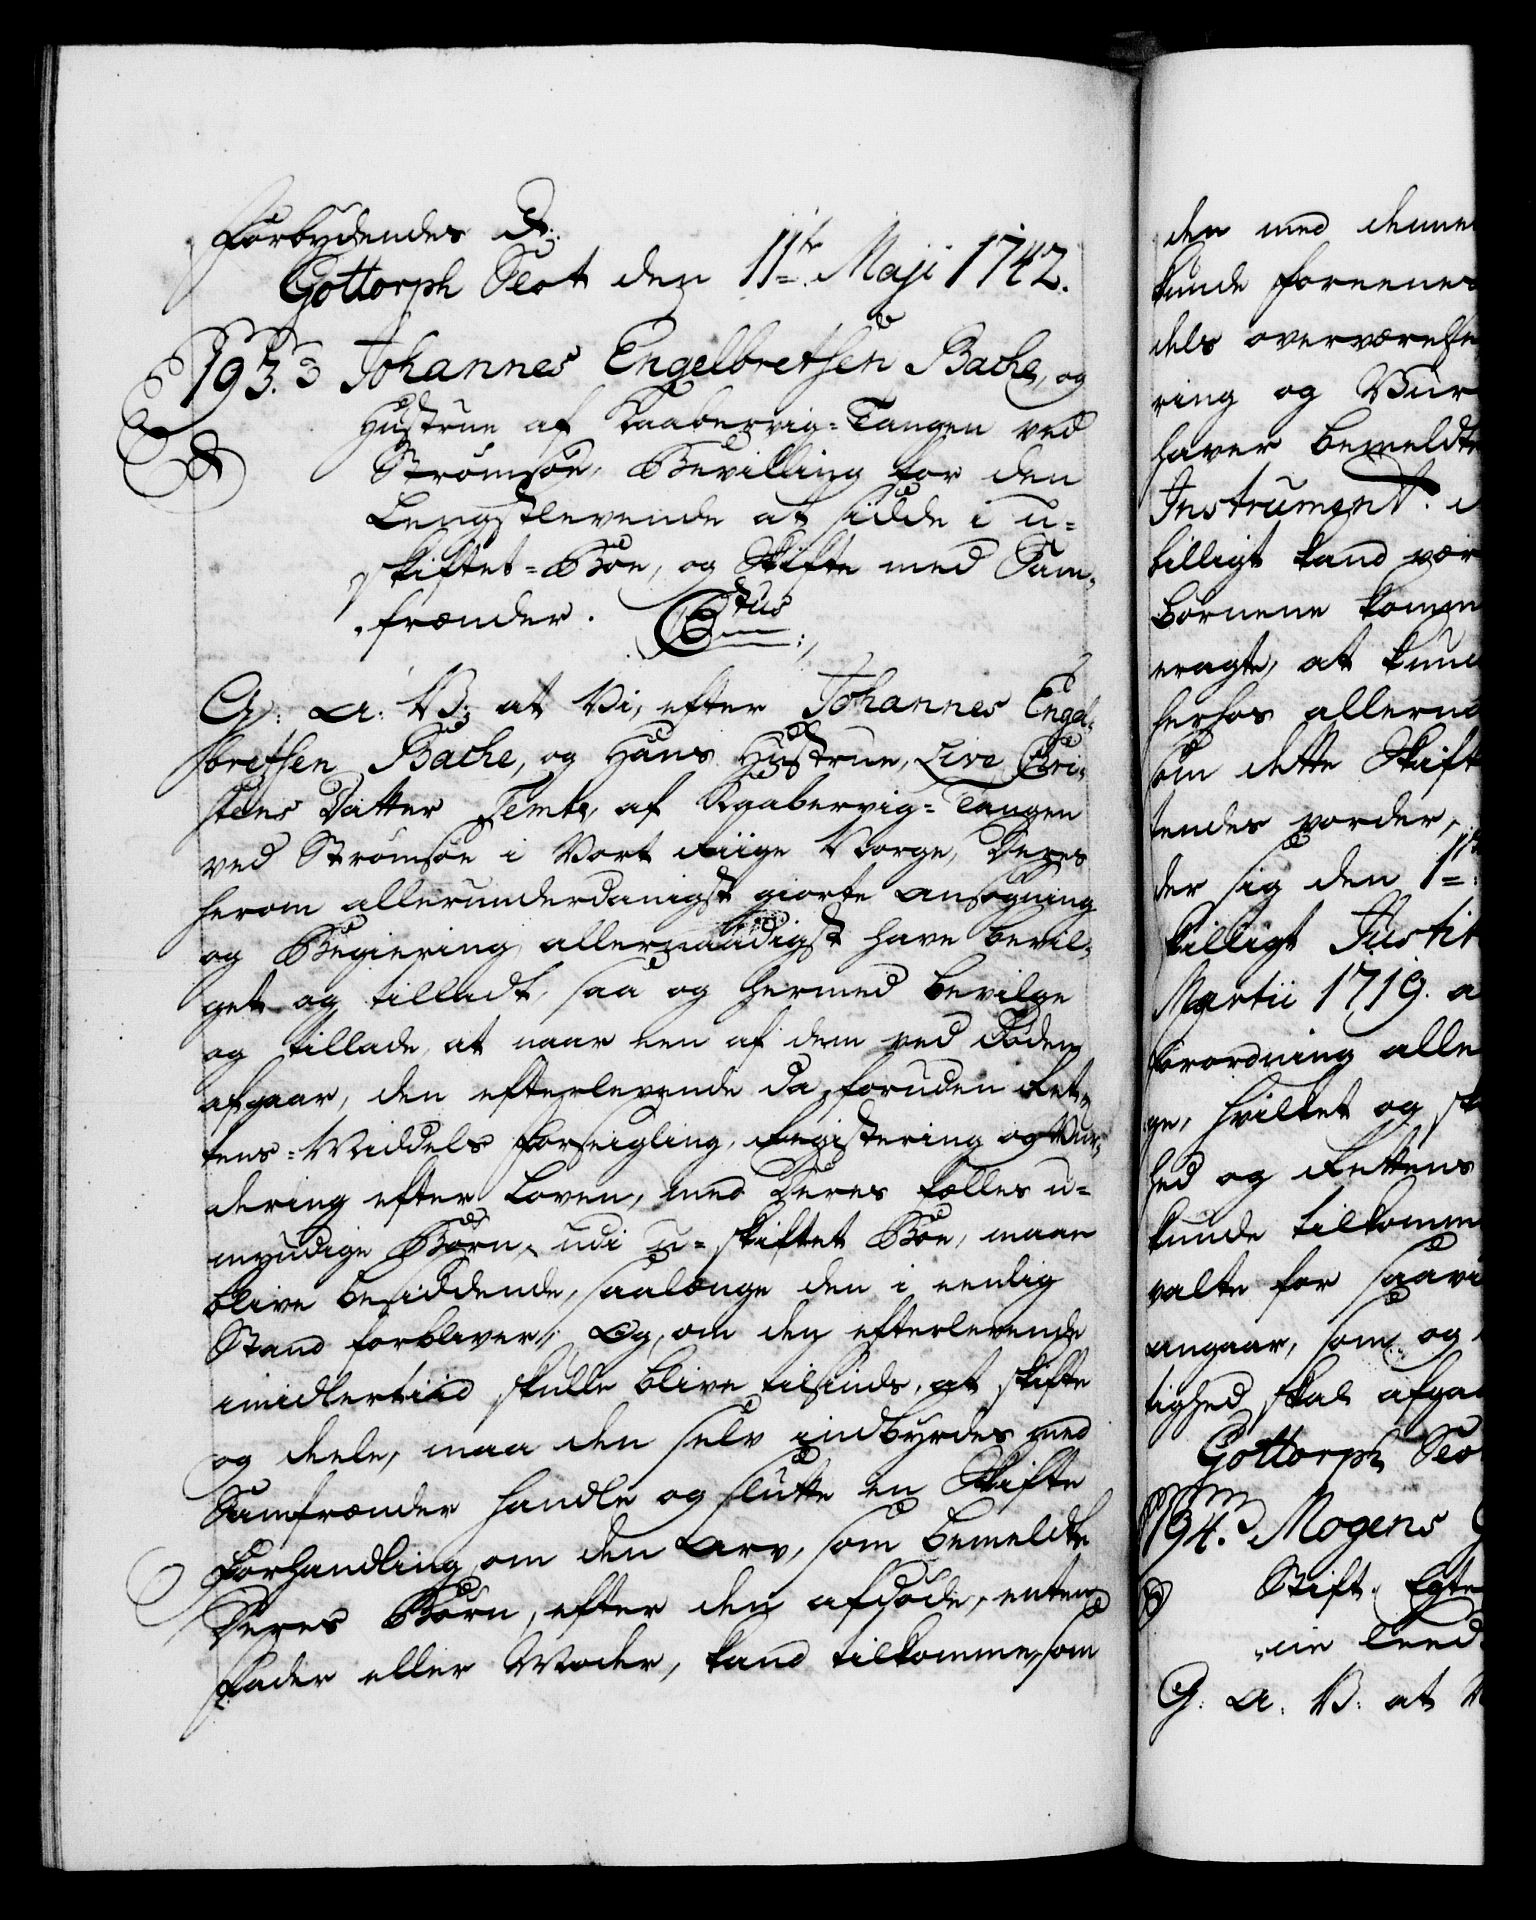 Forbydendes &.
Gottorph Slot den 11te Maji 1742.
193. Johannes Engelbretsen Bache, og
Hustrue af Kaabervig-Tangen ved
Strømsøe, Bevilling for den
Lengstlevende at sidde i u-
skiftet-Boe, og Skifte med Sam-
frænder.
G: A: V: at Vi, efter Johannes Engel-
bretsen Bache, og Hans Hustrue, Live Chri-
stens Datter af Kaabervig-Tangen
ved Strømsøe i Vort Riige Norge, Deres
herom allerunderdanigst giorte Ansøgning
og Begiering, allernaadigst have bevil-
get og tilladt, saa og hermed bevilge
og tillade, at naar een af dem ved Døden
afgaar, den efterlevende da, foruden Ret-
tens-Middels Forseigling, Registering og Vur-
dering efter Loven, med Deres fælles u-
myndige Børn, udi u-skiftet Boe, maae
blive besiddende, saalænge den i eenlig
Stand forbliver; Og, om den efterlevende
imidlertiid skulle blive tilsinds, at skifte
og deele, maa den selv indbyrdes med
Samfrænder handle og slutte en Skifte
Forhandling om den Arv, som bemeldte
Deres Børn, efter den afdøde, enten
Fader eller Moder, kand tilkomme, som
den med denne
kunde foreenes
dels overværelse
ring og Vur
haver bemeldte
Instrument
billigt kand vær
Børnene komm
eragte, at kun
herhos allerna
om dette Skift
tendes vorder,
der sig den 11te
billigt Justit
Martii 1719. a
Forordning alle
ge, hvilket og
hed og Rettens
kunde tilkomm
valte for saavi
angaar, som og
tighed skal afga
Gottorph Slo
194. Mogens
Stift
G: A: V: at V